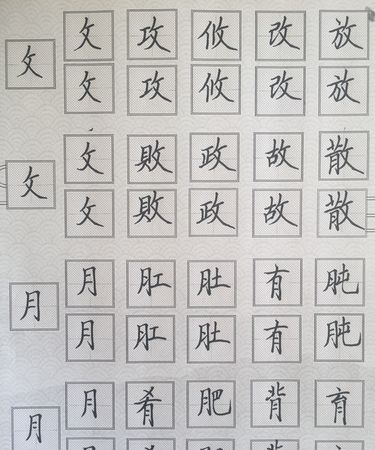 攵
攵 攻 攸 改 放
攵 攻 攸 改 放
攵
攵 敗 政 故 散
攵 敗 政 故 散
月
月 肛 肚 有 肫
月 肛 肚 有 肫
月
月 肴 肥 背 育